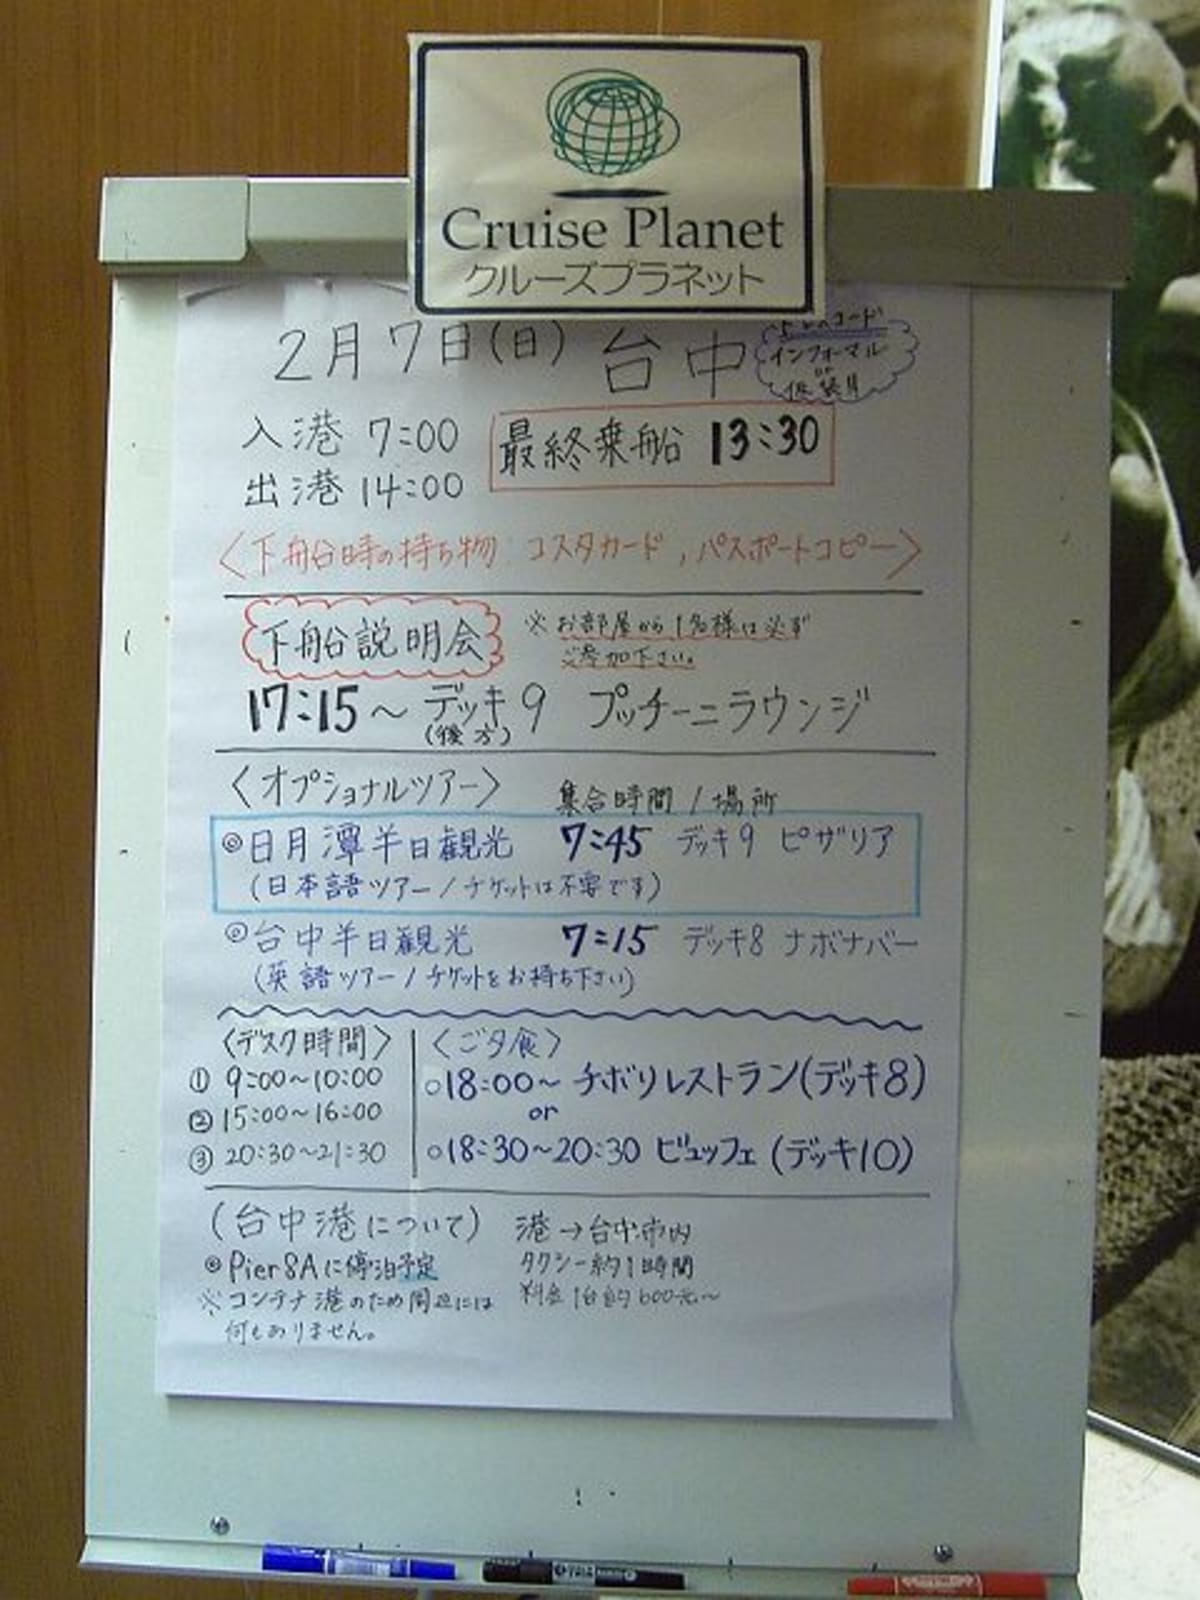 Cruise Planet
クルーズプラネット
2月7日(日) 台中
ドレスコード
インフォーマル
or
仮装
入港 7:00
最終乗船 13:30
出港 14:00
〈下船時の持ち物:コスタカード,パスポートコピー〉
下船説明会
※お部屋から1名様は必ず
ご参加下さい。
17:15〜 デッキ9 プッチーニラウンジ
(後方)
〈オプショナルツアー〉 集合時間/場所
◎日月潭半日観光 7:45 デッキ9 ピザリア
(日本語ツアー/チケットは不要です)
◎台中半日観光 7:15 デッキ8 ナボナバー
(英語ツアー/チケットをお持ち下さい)
〈デスク時間〉
① 9:00〜10:00
② 15:00〜16:00
③ 20:30〜21:30
〈ご夕食〉
○18:00〜 チボリレストラン(デッキ8)
or
○18:30〜20:30 ビュッフェ(デッキ10)
(台中港について)
◎Pier8Aに停泊予定
※コンテナ港のため周辺には
何もありません。
港→台中市内
タクシー約1時間
料金1台約600元〜